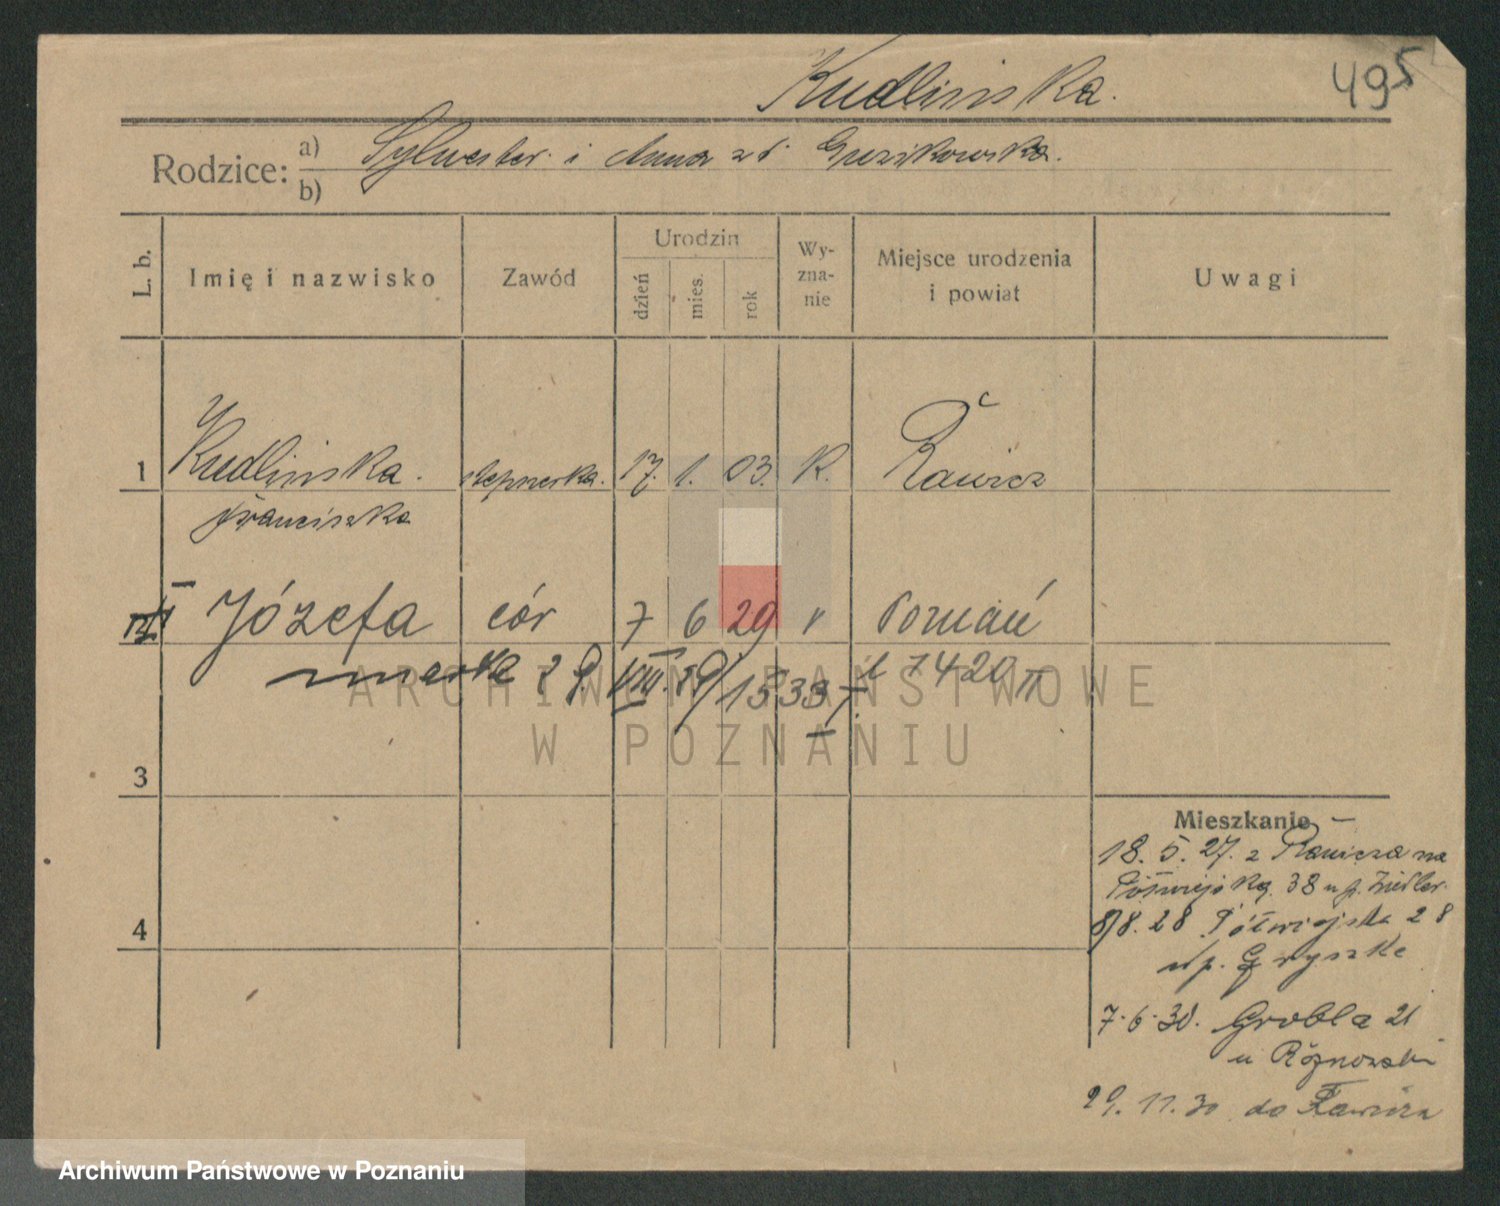 Kudlińska.
495
Rodzice: a) Sylwester i Anna zd. Guzikowska.
b)
L. b.
Imię i nazwisko
Zawód
Urodzin
dzień
mies.
rok
Wy-
zna-
nie
Miejsce urodzenia
i powiat
Uwagi
1 Kudlińska. 17. 1. 03. K. Rawicz
Franciszka
II Józefa cór 7 6 29 " Poznań
zmarła 29. VIII. 29/1533 7420 II
ARCHIWUM PAŃSTWOWE
W POZNANIU
3
4
Mieszkanie
18. 5. 27. z Rawicza na
Półwiejską 38 u p. Fiedler.
8/8. 28 Półwiejska 28
u p. Gryszke
7.6.30. Grobla 21
u Różnowski
29. 11. 30 do Rawicza
Archiwum Państwowe w Poznaniu